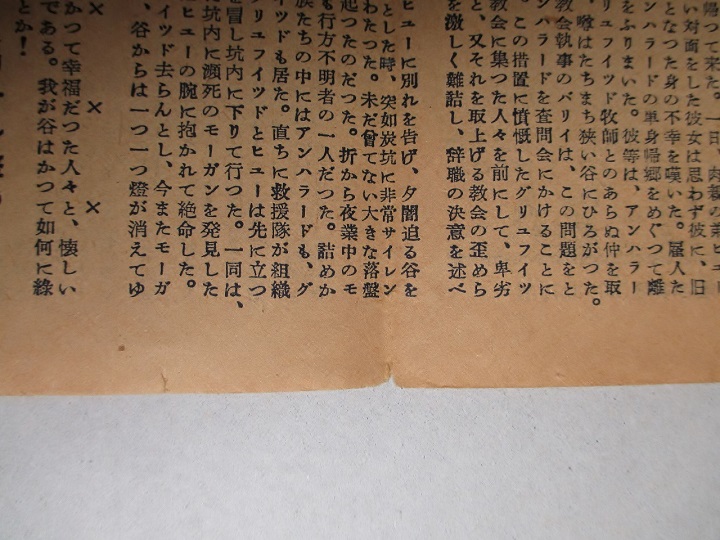 帰つて来た。一日、
い対面をした彼女は思わず彼に、旧
となつた身の不幸を嘆いた。雇人た
ンハラードの単身帰郷をめぐつて離
をふりまいた。彼等は、アンハラー
リュフイツド牧師とのあらぬ仲を取
、噂はたちまち狭い谷にひろがつた。
教会執事のバリイは、この問題をと
ンハラードを査問会にかけることに
。この措置に憤慨したグリュフイツ
教会に集つた人々を前にして、卑劣
と、又それを取上げる教会の歪めら
を激しく難詰し、辞職の決意を述べ
ヒューに別れを告げ、夕闇迫る谷を
とした時、突如炭坑に非常サイレン
わたつた。未だ曾てない大きな落盤
起つたのだつた。折から夜業中のモ
も行方不明者の一人だつた。詰めか
族たちの中にはアンハラードも、グ
イツドも居た。直ちに救援隊が組織
グリュフイツドとヒューは先に立つ
を冒し坑内に下りて行つた。一同は、
た坑内に瀕死のモーガンを発見した
ヒューの腕に抱かれて絶命した。
イツド去らんとし、今またモーガ
、谷からは一つ一つ燈が消えてゆ
× × ×
かつて幸福だつた人々と、懐しい
である。我が谷はかつて如何に綠
とか!